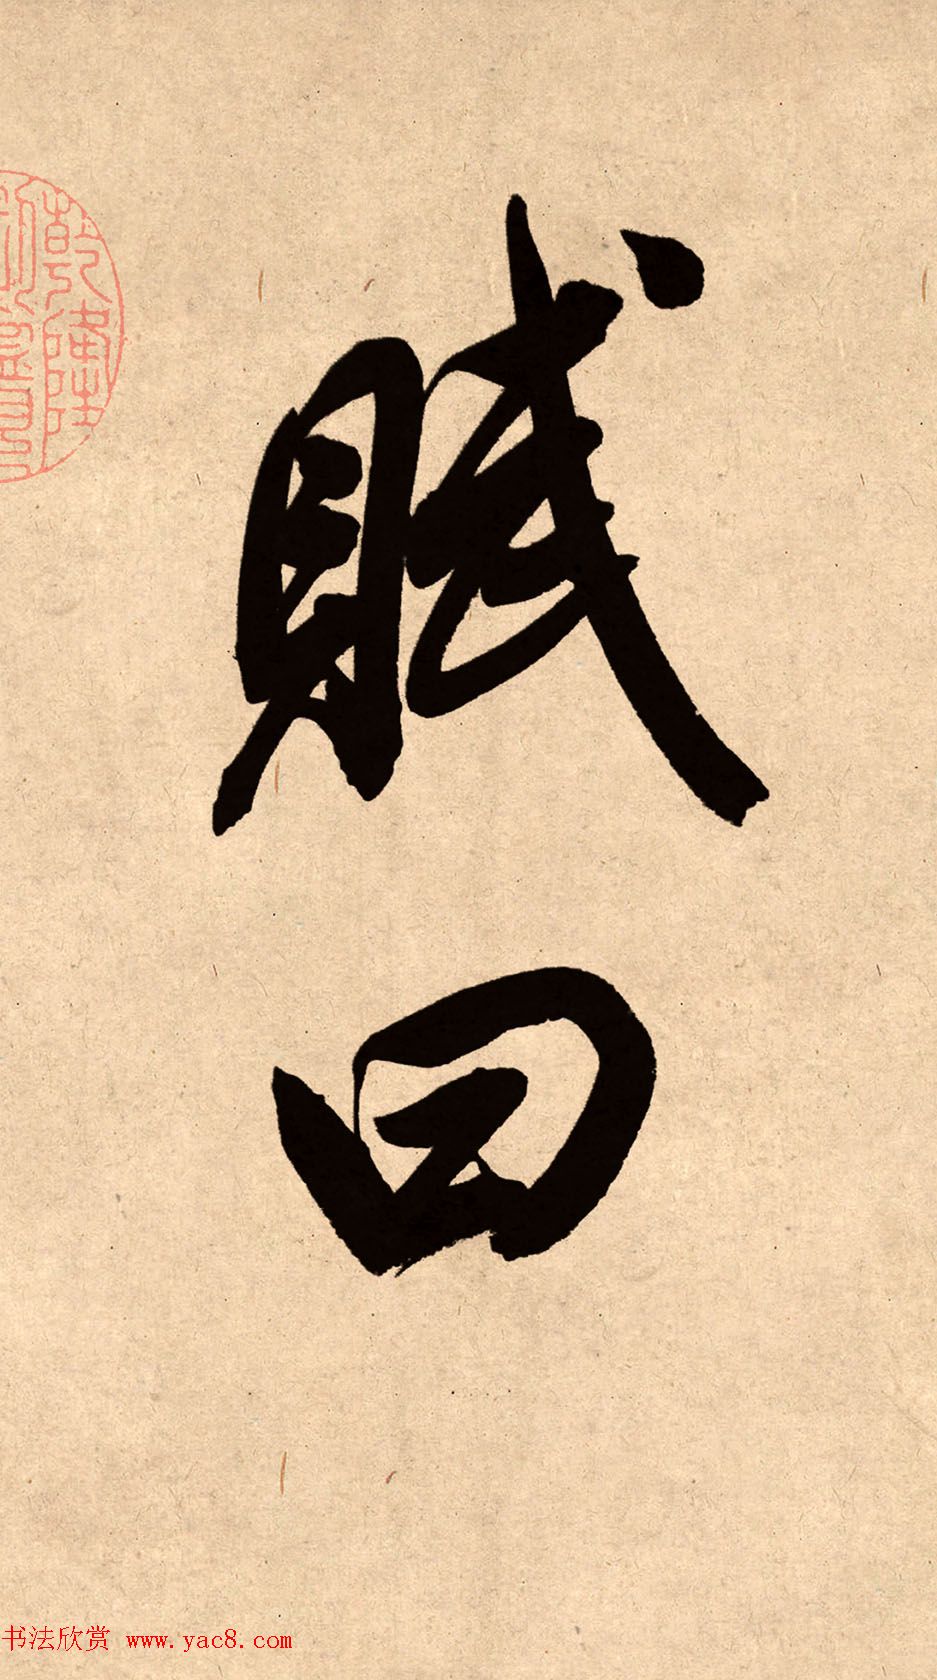 賦曰
乾隆
书法欣赏 www.yac8.com